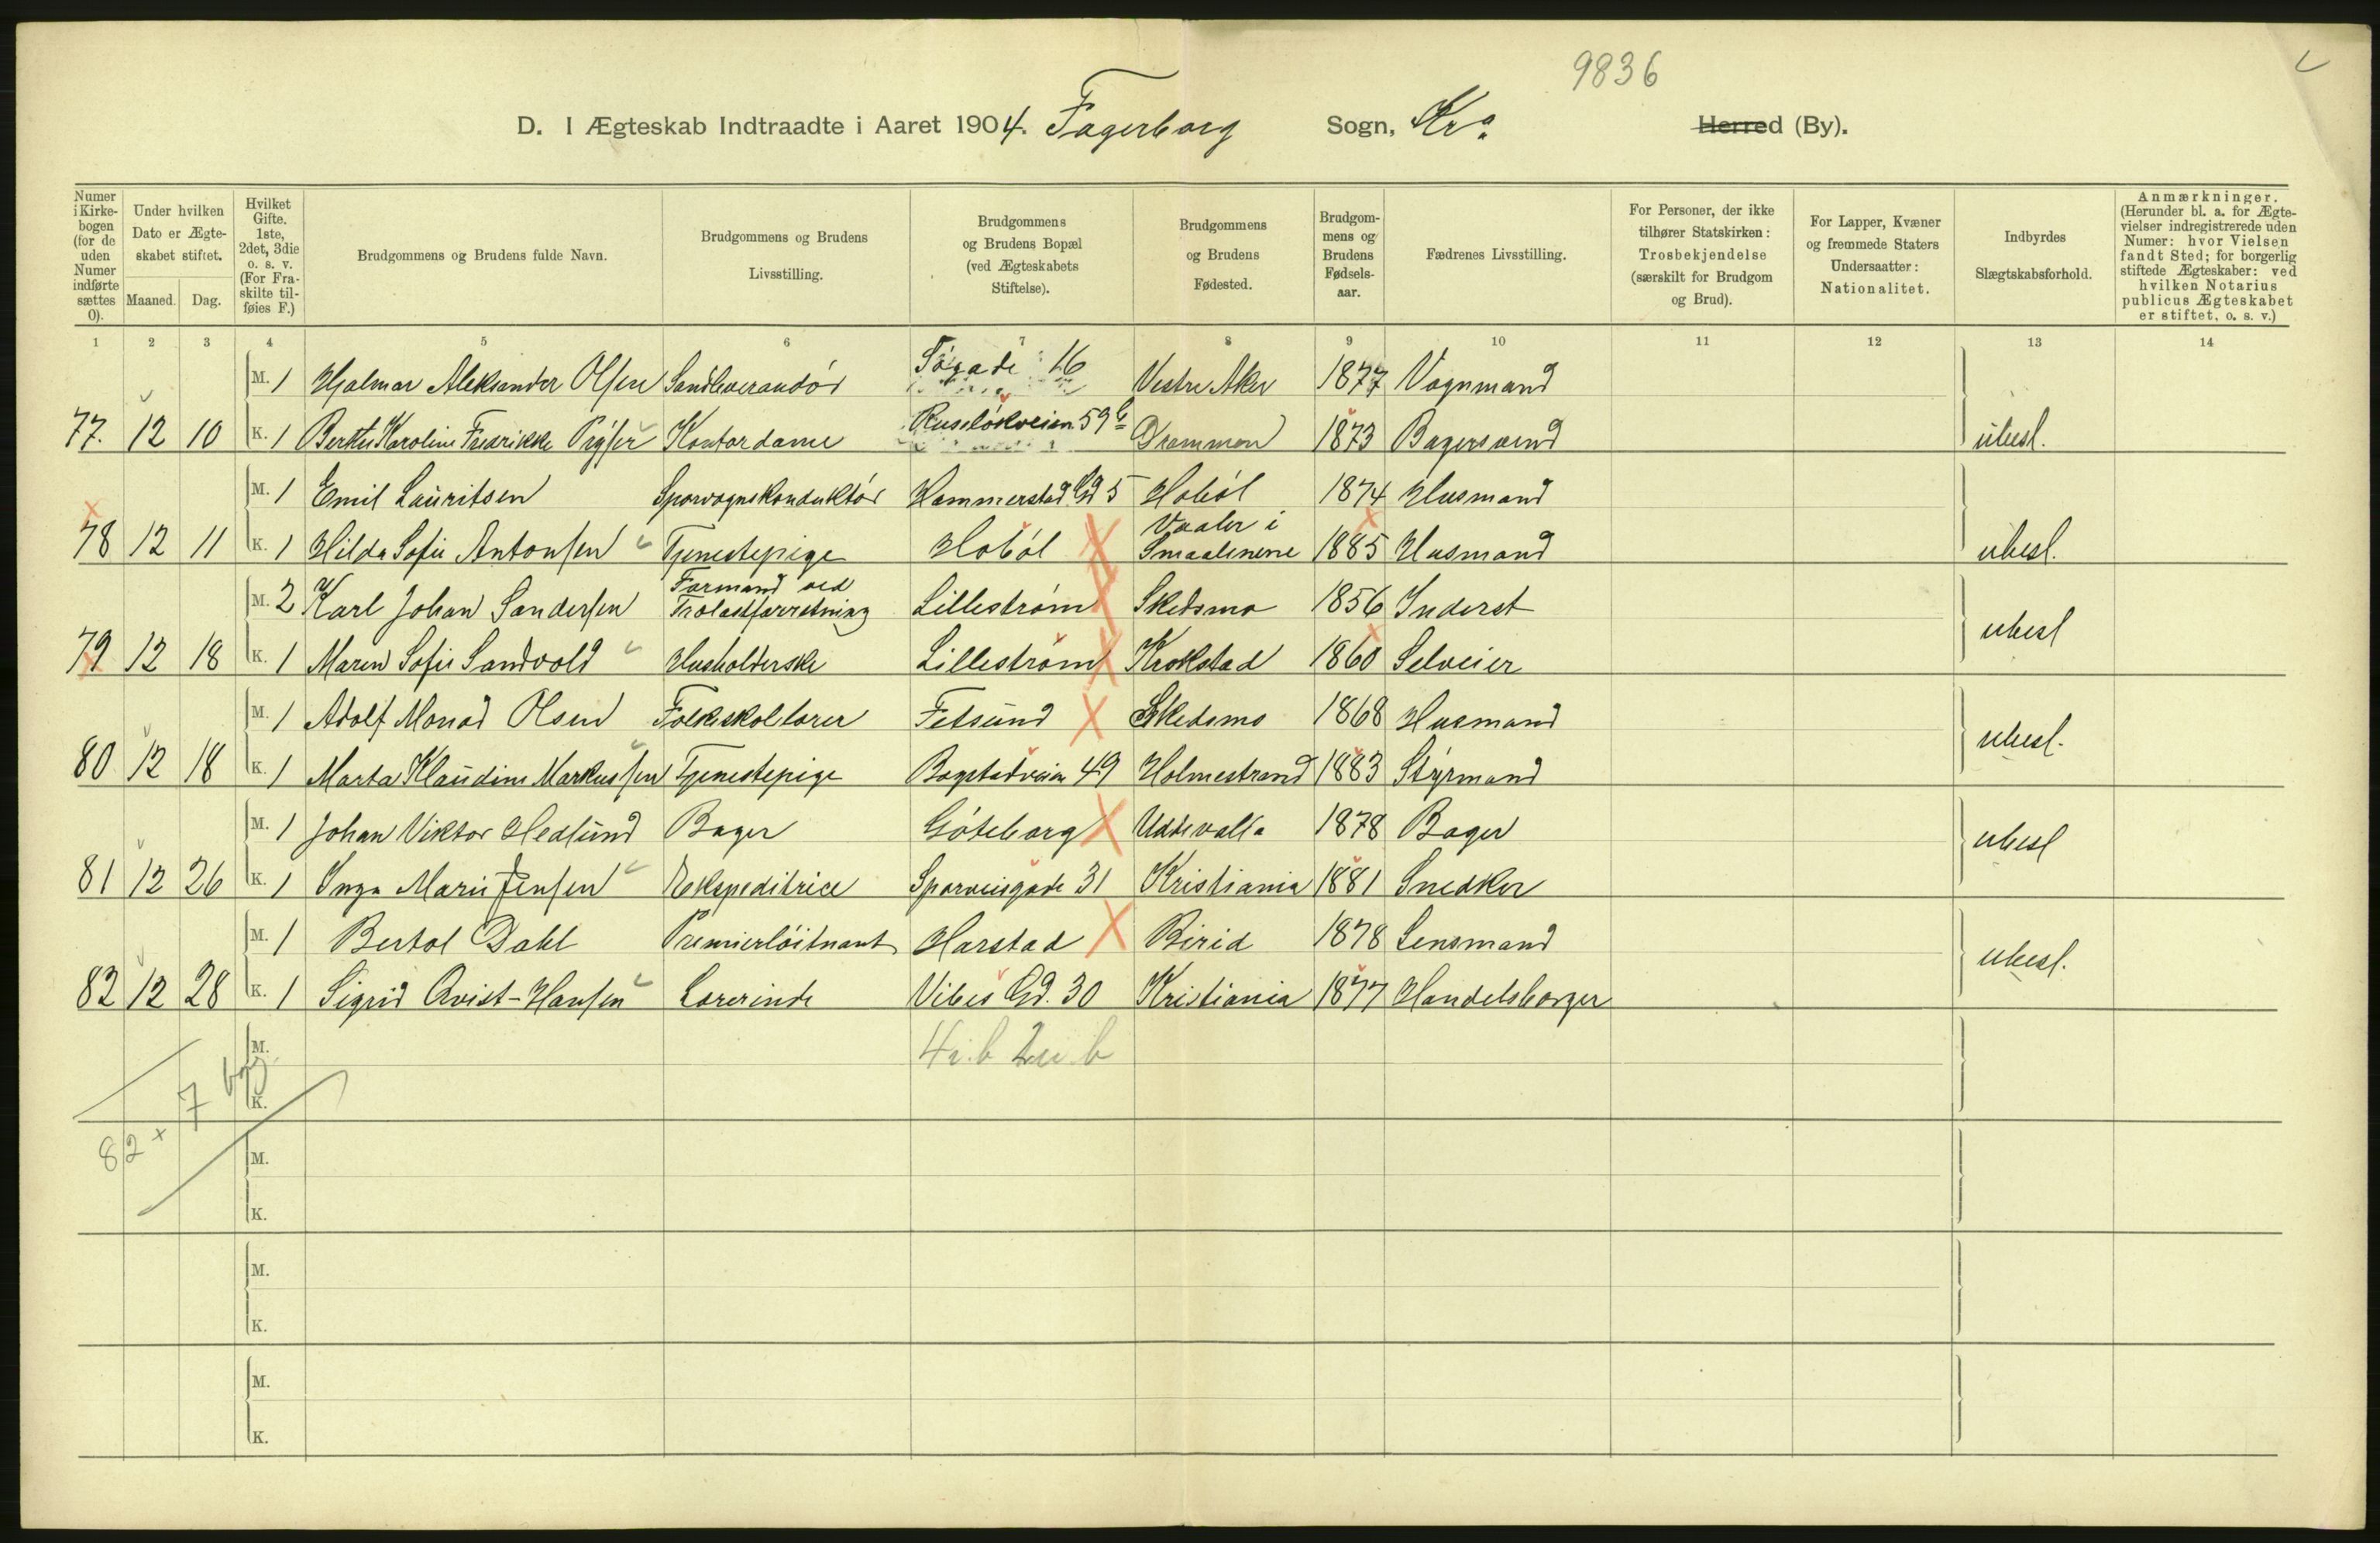 9836
D. I Ægteskab Indtraadte i Aaret 1904. Fagerborg Sogn, Kra Herred (By).
Numer i Kirkebogen (for de uden Numer indførte sættes 0).
Under hvilken Dato er Ægteskabet stiftet.
Maaned. Dag.
Hvilket Gifte. 1ste, 2det, 3die o. s. v. (For Fraskilte tilføies F.)
Brudgommens og Brudens fulde Navn.
Brudgommens og Brudens Livsstilling.
Brudgommens og Brudens Bopæl (ved Ægteskabets Stiftelse).
Brudgommens og Brudens Fødested.
Brudgommens og Brudens Fødselsaar.
Fædrenes Livsstilling.
For Personer, der ikke tilhører Statskirken: Trosbekjendelse (særskilt for Brudgom og Brud).
For Lapper, Kvæner og fremmede Staters Undersaatter: Nationalitet.
Indbyrdes Slægtskabsforhold.
Anmærkninger. (Herunder bl. a. for Ægtevielser indregistrerede uden Numer: hvor Vielsen fandt Sted; for borgerlig stiftede Ægteskaber: ved hvilken Notarius publicus Ægteskabet er stiftet, o. s. v.)
1 2 3 4 5 6 7 8 9 10 11 12 13 14
M. 1 Hjalmar Aleksander Olsen Sandleverandör Tögade 16 Vestre Aker 1877 Vognmand
77. 12 10 K. 1 Karoline Fredrikke Kontordame Ruselökveien 59 Drammen 1873 Bagersvend ubesl.
M. 1 Emil Lauritsen Sporvognskonduktör Hammerstad Gd 5 Haböl 1874 Husmand
78 12 11 K. 1 Hilda Sofie Antonsen Tjenestepige Haböl Vaaler i Smaalenene 1885 Husmand ubesl.
M. 2 Karl Johan Sandersen Formand ved Trælastforretning Lilleström Skedsmo 1856 Inderst
79 12 18 K. 1 Maren Sofie Sandvold Husholderske Lilleström Krokstad 1860 Selveier ubesl
M. 1 Adolf Monad Olsen Folkeskolelærer Fetsund Skedsmo 1868 Husmand
80 12 18 K. 1 Marta Klaudine Markussen Tjenestepige Bogstadveien 49 Holmestrand 1883 Styrmand ubesl.
M. 1 Johan Viktor Hedlund Bager Göteborg Uddevalla 1878 Bager
81 12 26 K. 1 Inga Marie Jensen Ekspeditrice Sporveisgade 31 Kristiania 1881 Snedker ubesl
M. 1 Bertol Dahl Premierlöitnant Harstad Birid 1878 Lensmand
82 12 28 K. 1 Sigrid Qvist-Hansen Lærerinde Vibes Gd. 30 Kristiania 1877 Handelsborger ubesl.
M.
K.
82 7
M.
K.
M.
K.
M.
K.